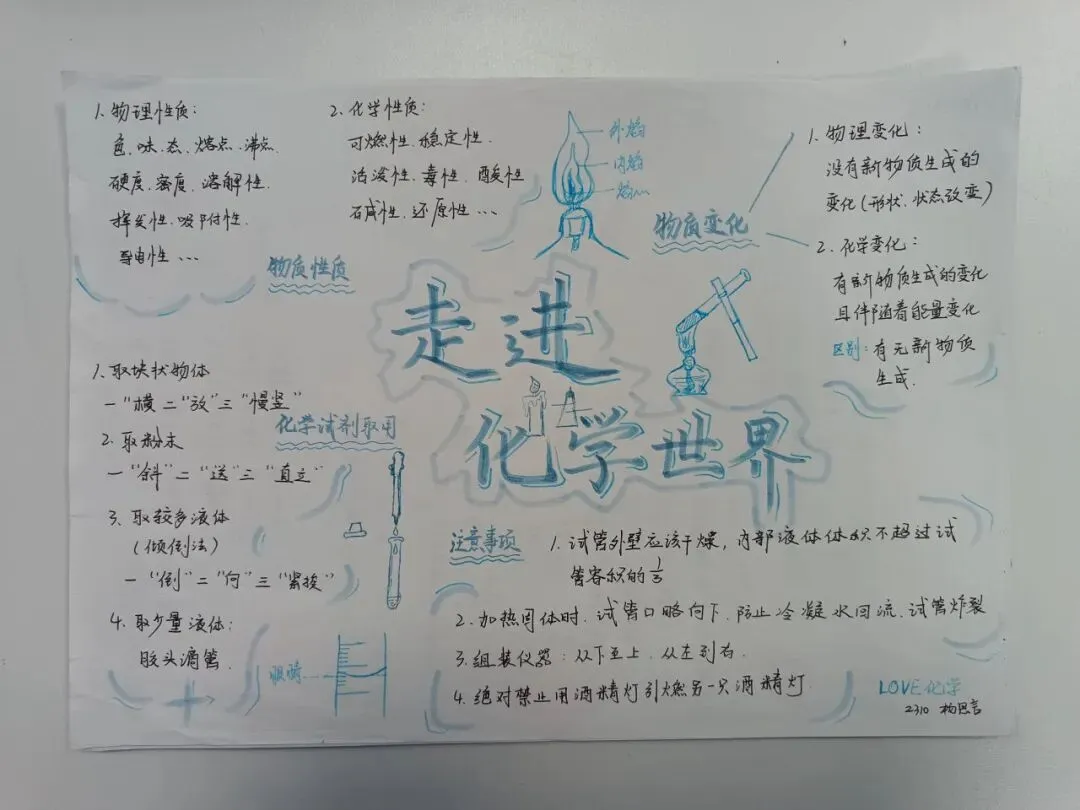 1. 物理性质：
色、味、态、熔点、沸点、
硬度、密度、溶解性、
挥发性、吸附性、
导电性、…
物质性质
2. 化学性质：
可燃性、稳定性、
活泼性、毒性、酸性
碱性、还原性、…
外焰
内焰
焰心
物质变化
1. 物理变化：
没有新物质生成的
变化（形状、状态改变）
2. 化学变化：
有新物质生成的变化
且伴随着能量变化
区别：有无新物质
生成.
走进
化学世界
化学试剂取用
1. 取块状物体
一“横”二“放”三“慢竖”
2. 取粉末
一“斜”二“送”三“直立”
3. 取较多液体
（倾倒法）
一“倒”二“向”三“紧挨”
4. 取少量液体：
胶头滴管.
眼睛
注意事项
1. 试管外壁应该干燥，内部液体体积不超过试
管容积的1/3
2. 加热固体时、试管口略向下、防止冷凝水回流、试管炸裂
3. 组装仪器：从下至上、从左到右.
4. 绝对禁止用酒精灯引燃另一只酒精灯.
LOVE化学
2310 杨思言